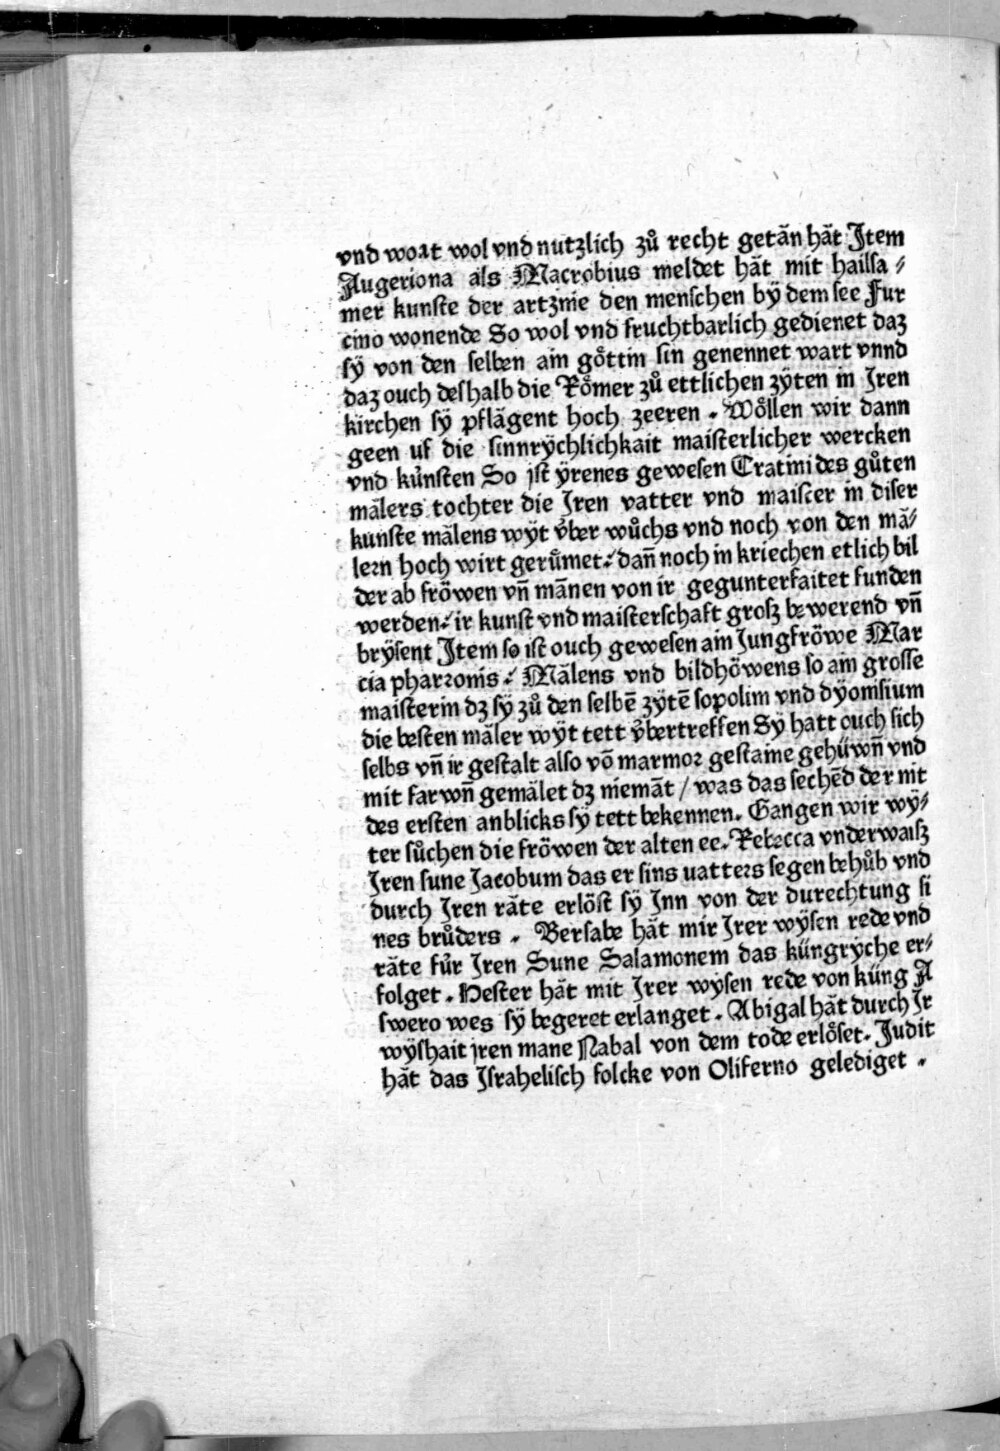 vnd woꝛt wol vnd nutzlich zů recht getān hāt Jtem
Augeriona als Macrobius meldet hāt mit hailſa⸗
mer kunſte der artznie den menſchen bÿ dem ſee Fur
cino wonende So wol vnd fruchtbarlich gedienet daz
ſÿ von den ſelben ain gǒttin ſin genennet wart vnnd
daz ouch deſhalb die Rǒmer zů ettlichen zÿten in Jren
kirchen ſÿ pflāgent hoch zeeren . Wǒllen wir dann
geen uf die ſinnrÿchlichkait maiſterlicher wercken
vnd kůnſten So jſt ÿrenes geweſen Cratini des gůten
mālers tochter die Jren vatter vnd maiſter in diſer
kunſte mālens wÿt v̊ber wůchs vnd noch von den mā⸗
lern hoch wirt gerůmet⸝ dan̄ noch in kriechen etlich bil
der ab frȫwen vn̄ mānen von ir gegunterfaitet funden
werden⸝ ir kunſt vnd maiſterſchaft groſz bewerend vn̄
brÿſent Jtem ſo iſt ouch geweſen ain Jungfrȫwe Mar
cia pharꝛonis⸝ Mālens vnd bildhȫwens ſo ain groſſe
maiſterin dz ſÿ zů den ſelbē zÿtē ſopolim vnd dÿoniſium
die beſten māler wÿt tett v̊bertreffen Sÿ hatt ouch ſich
ſelbs vn̄ ir geſtalt alſo vō marmoꝛ geſtaine gehüwn̄ vnd
mit farwn̄ gemālet dz niemāt / was das ſechēd der nit
des erſten anblicks ſÿ tett bekennen. Gangen wir wÿ⸗
ter ſůchen die frȫwen der alten ee. Rebecca vnderwaiſz
Jren ſune Jacobum das er ſins uatters ſegen behůb vnd
durch Jren rāte erlöſt ſÿ Jnn von der durechtung ſi
nes brůders . Berſabe hāt mir Jrer wÿſen rede vnd
rāte fůr Jren Sune Salamonem das küngrÿche er⸗
folget . Heſter hāt mit Jrer wyſen rede von küng A
ſwero wes ſÿ begeret erlanget . Abigal hāt durch Jr
wÿſhait jren mane Nabal von dem tode erlǒſet. Judit
hāt das Jſraheliſch folcke von Oliferno gelediget .